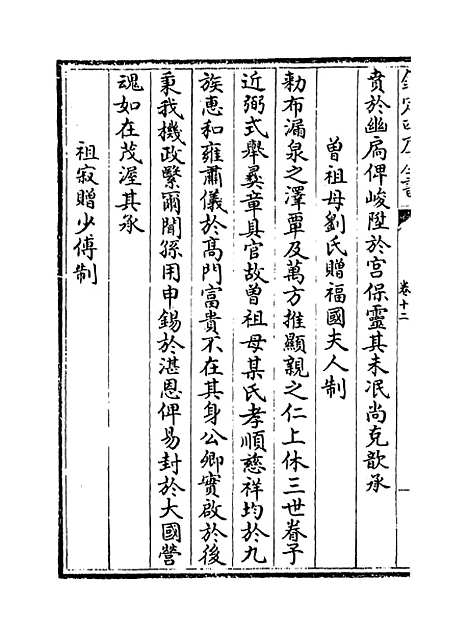 欽定四庫全書
卷十二
賁於幽扃俾峻陞於宫保靈其未泯尚克歆承
曽祖母劉氏贈福國夫人制
勑布漏泉之澤覃及萬方推顯親之仁上休三世眷予
近弼式舉彞章具官故曽祖母某氏孝順慈祥均於九
族惠和雍肅儀於髙門富貴不在其身公卿實啟於後
秉我機政繄爾聞孫用申錫於湛恩俾易封於大國營
魂如在茂渥其承
祖寂贈少傅制